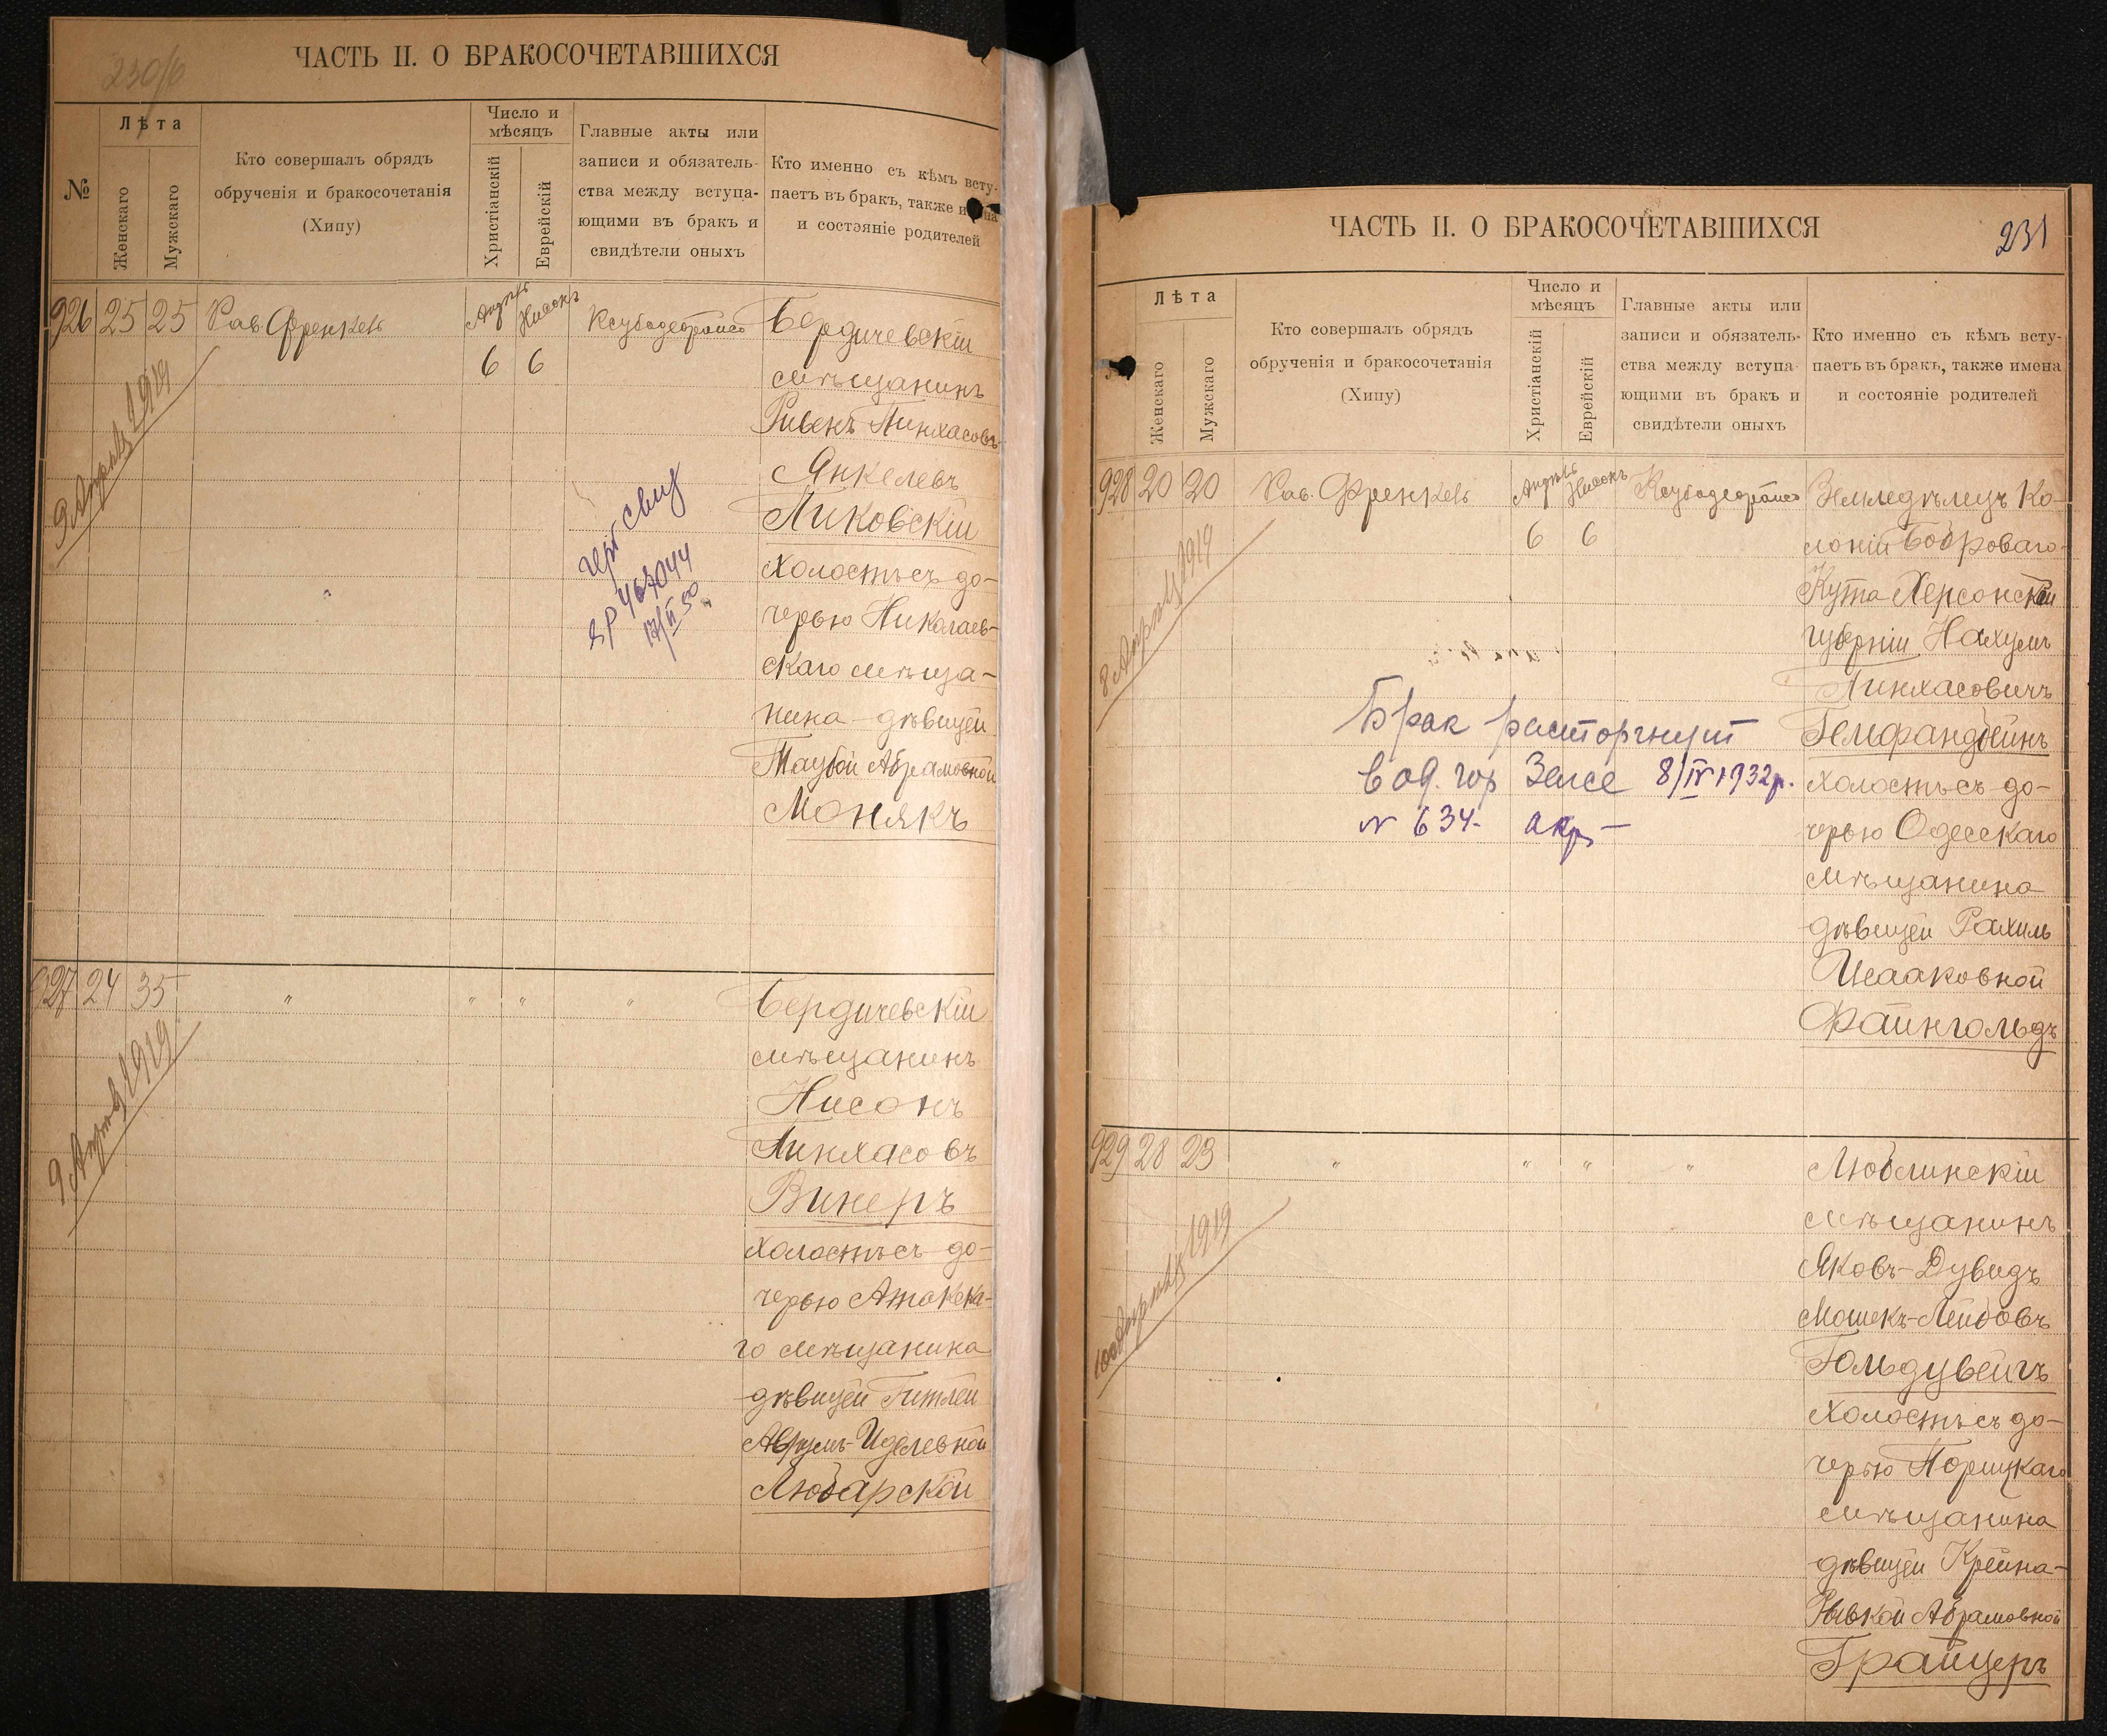 230/б
ЧАСТЬ II. О БРАКОСОЧЕТАВШИХСЯ
№
Лѣта
Женскаго
Мужскаго
Кто совершалъ обрядъ
обрученія и бракосочетанія
(Хипу)
Число и
мѣсяцъ
Христіанскій
Еврейскій
Главные акты или
записи и обязатель-
ства между вступа-
ющими въ бракъ и
свидѣтели оныхъ
Кто именно съ кѣмъ всту-
паетъ въ бракъ, также и на
и состояніе родителей
926 25 25 Рав. Френкель
Апрѣль Нисонъ
6 6
9 Апрѣль 1919
Бердичевскій
мѣщанинъ
Ривенъ Пинхасовъ-
Янкелевъ
Пиковскій
холостъ съ до-
черью Николаев-
скаго мѣща-
нина дѣвицей
Таубой Абрамовной
Монякъ
467044
17/II 50
927 24 35 " " " "
9 Апрѣль 1919
Бердичевскій
мѣщанинъ
Нисонъ
Пинхасовъ
Винеръ
холостъ съ до-
черью
го мѣщанина
дѣвицей Гитлей
Аврумъ-Иделевной
Любарской
231
ЧАСТЬ II. О БРАКОСОЧЕТАВШИХСЯ
Лѣта
Женскаго
Мужскаго
Кто совершалъ обрядъ
обрученія и бракосочетанія
(Хипу)
Число и
мѣсяцъ
Христіанскій
Еврейскій
Главные акты или
записи и обязатель-
ства между вступа
ющими въ бракъ и
свидѣтели оныхъ
Кто именно съ кѣмъ всту-
паетъ въ бракъ, также имена
и состояніе родителей
928 20 20 Рав. Френкель
Апрѣль Нисонъ
6 6
8 Апрѣль 1919
Земледѣлецъ Ко-
лоніи Боброваго-
Кута Херсонской
губерніи Нахумъ
Пинхасовичъ
Гельфандбейнъ
холостъ съ до-
черью Одесскаго
мѣщанина
дѣвицей Рахиль
Исааковной
Файнгольдъ
Брак расторгнут
в Од. гор Загсе 8/IV 1932р.
№ 634-
929 28 23 " " " "
10 Апрѣль 1919
Люблинскій
мѣщанинъ
Яковъ-Дувидъ
Мошекъ-Лейбовъ
Гольдцвейгъ
холостъ съ до-
черью Порицкаго
мѣщанина
дѣвицей Крейна-
Рывкой Абрамовной
Грайцеръ